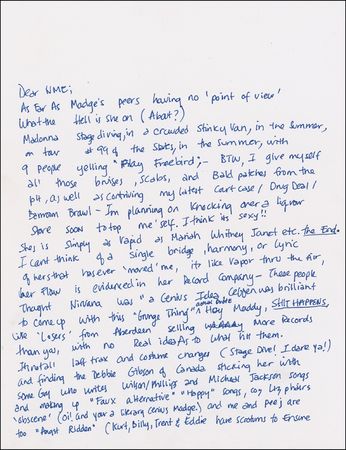 Dear NME;
As Far As Madge's peers having no 'point of view'
What the Hell is she on (About?)
Madonna stage diving, in a crowded stinky Van, in the Summer,
on tour #99 of the States, in the summer, with
9 people yelling "Play Freebird";- BTW, I give myself
all those bruises, scabs, and Bald patches from the
pit, as well as contriving my latest Court case / Drug Deal /
Barroom Brawl - Im planning on knocking over a liquor
Store soon to top me self. I think its sexy!!
She is simply as vapid as Mariah Whitney Janet etc. the End.
I cant think of a single bridge, harmony, or Lyric
of hers that has ever 'moved' me, its like vapor thru the Air,
her Flow is evidenced in her Record Company - These people
Thought Nirvana was "a Genius Idea, Geffen was brilliant
to come up with this 'Grunge Thing'" Hey Maddy, SHIT HAPPENS,
like 'Losers' from Aberdeen selling More Records
than you, with no Real idea As to what hit them.
Its not all laff trax and costume changes (Stage Dive! I dare ya!)
and finding the Debbie Gibson of Canada sticking her with
some Guy who writes Wilson/Phillips and Micheal Jackson songs
and making up "Faux alternative" "Happy" songs, coy Liz phairs
'obscene' (oi! and your a literary Genius Madge!) and me and peej are
too "Angst Ridden" (Kurt, Billy, Trent & Eddie have scrotums to Ensure